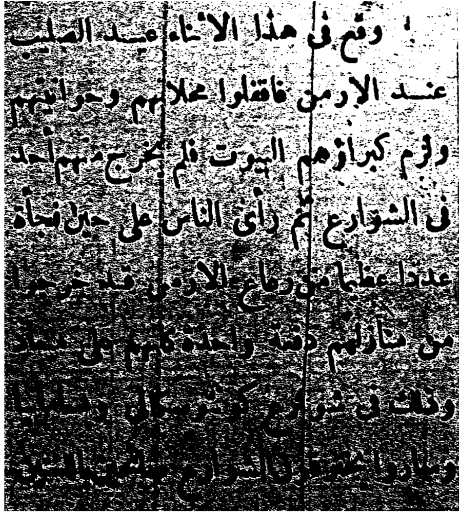 وقع فى هذا الاثناء عيد الصليب
عند الارمن فاقفلوا محلاتهم وحوانيتهم
ولزم كبراؤهم البيوت فلم يخرج منهم أحد
فى الشوارع ثم رأى الناس على حين فجأة
عددا عظيما من رعاع الارمن قد خرجوا
من منازلهم دفعة واحدة كأنهم على ميعاد
وذلك فى شوارع
وصاروا يخترقون الشوارع